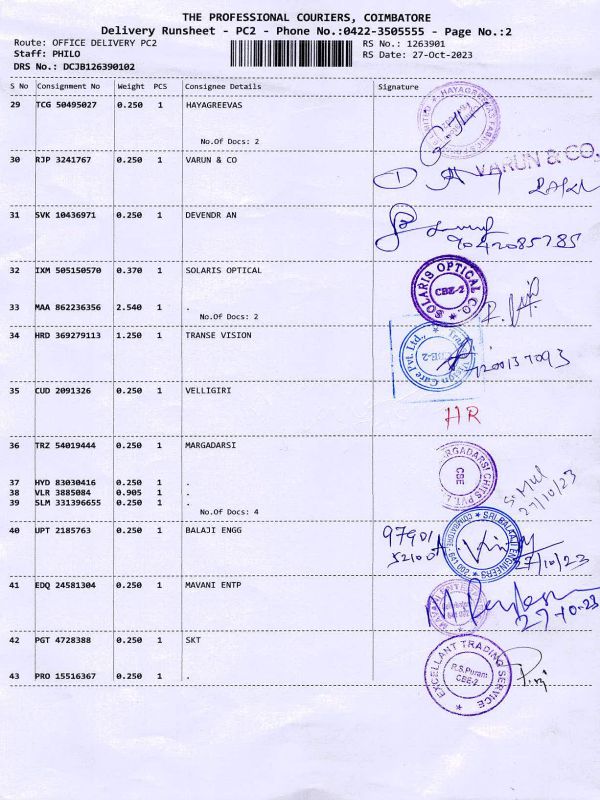 THE PROFESSIONAL COURIERS, COIMBATORE
Delivery Runsheet - PC2 - Phone No.:0422-3505555 - Page No.:2
Route: OFFICE DELIVERY PC2
RS No.: 1263901
Staff: PHILO
RS Date: 27-Oct-2023
DRS No.: DCJB126390102
S No Consignment No Weight PCS Consignee Details Signature
29 TCG 50495027 0.250 1 HAYAGREEVAS
No.Of Docs: 2
30 RJP 3241767 0.250 1 VARUN & CO
VARUN & CO,
31 SVK 10436971 0.250 1 DEVENDR AN
9042085785
32 IXM 505150570 0.370 1 SOLARIS OPTICAL
SOLARIS OPTICAL CO. CBE-2
33 MAA 862236356 2.540 1 .
No.Of Docs: 2
34 HRD 369279113 1.250 1 TRANSE VISION
Trans Vision Care Pvt. Ltd., CBE-2
35 CUD 2091326 0.250 1 VELLIGIRI
HR
36 TRZ 54019444 0.250 1 MARGADARSI
MARGADARSI CHITS PVT. CBE
27/10/23
37 HYD 83030416 0.250 1 .
38 VLR 3885084 0.905 1 .
39 SLM 331396655 0.250 1 .
No.Of Docs: 4
40 UPT 2185763 0.250 1 BALAJI ENGG
SRI BALAAJI ENGINEERS COIMBATORE
97901
52100
27/10/23
41 EDQ 24581304 0.250 1 MAVANI ENTP
27-10-23
42 PGT 4728388 0.250 1 SKT
EXCELLANT TRADING SERVICE R.S.Puram CBE-2
43 PRO 15516367 0.250 1 .